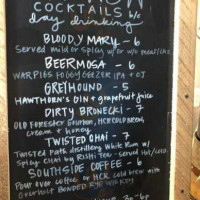 COCKTAILS b/c
day drinking
BLOODY MARY - 6
Served mild or spicy w/ or w/o meat/chz
BEERMOSA - 6
WARPIGS FOGGY GEEZER IPA + OJ
GREYHOUND - 5
HAWTHORN'S GIN + grapefruit juice
DIRTY BRONECKI - 7
OLD FORESTER Bourbon, HCK COLD BREW,
cream + honey
TWISTED CHAI - 7
TWISTED PATH distillery White Rum w/
Spicy CHAI by RISHI Tea - served hot/cold
SOUTHSIDE COFFEE - 6
Pour over coffee or HCK cold brew with
OVERHOLT BONDED RYE WHISKEY
3p-6p